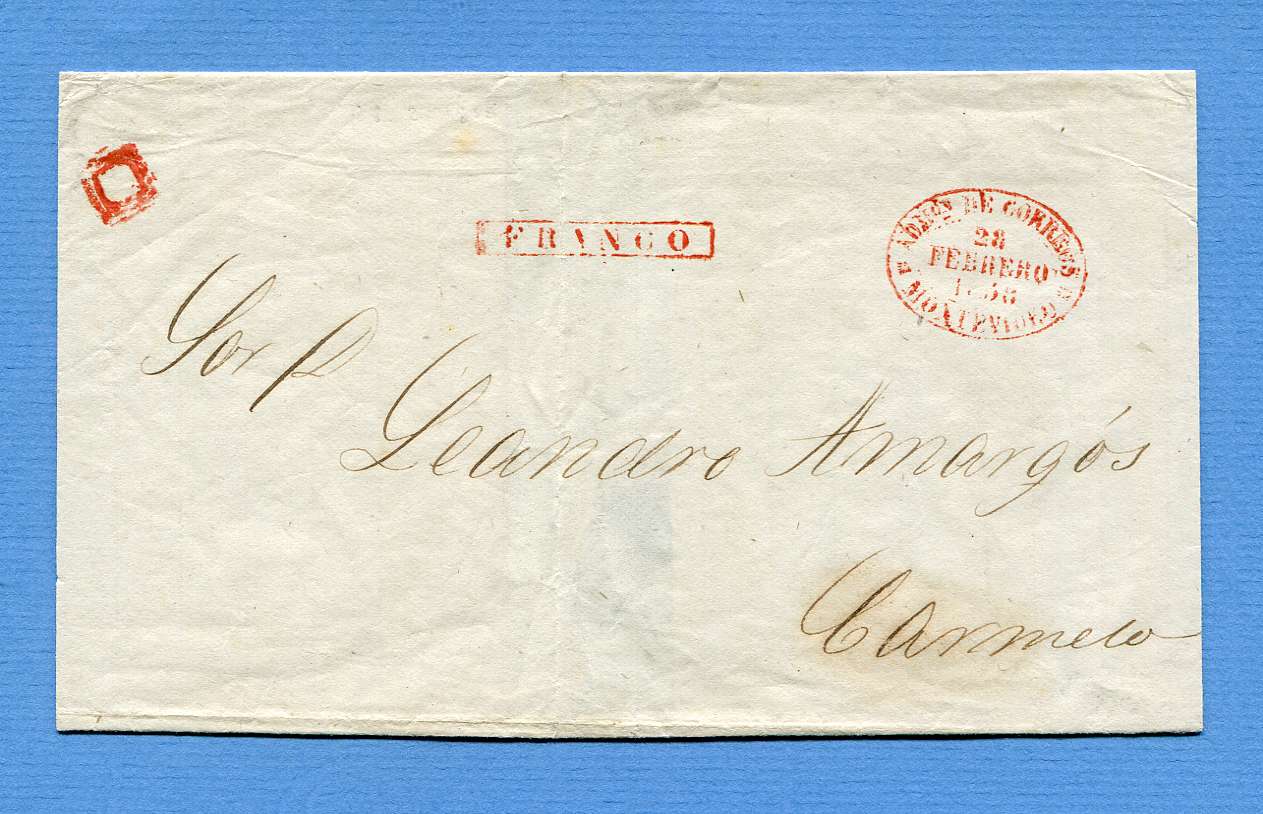 FRANCO
ADMON DE CORREOS
28
FEBRERO
MONTEVIDEO
Sor D
Leandro Amargós
Carmelo